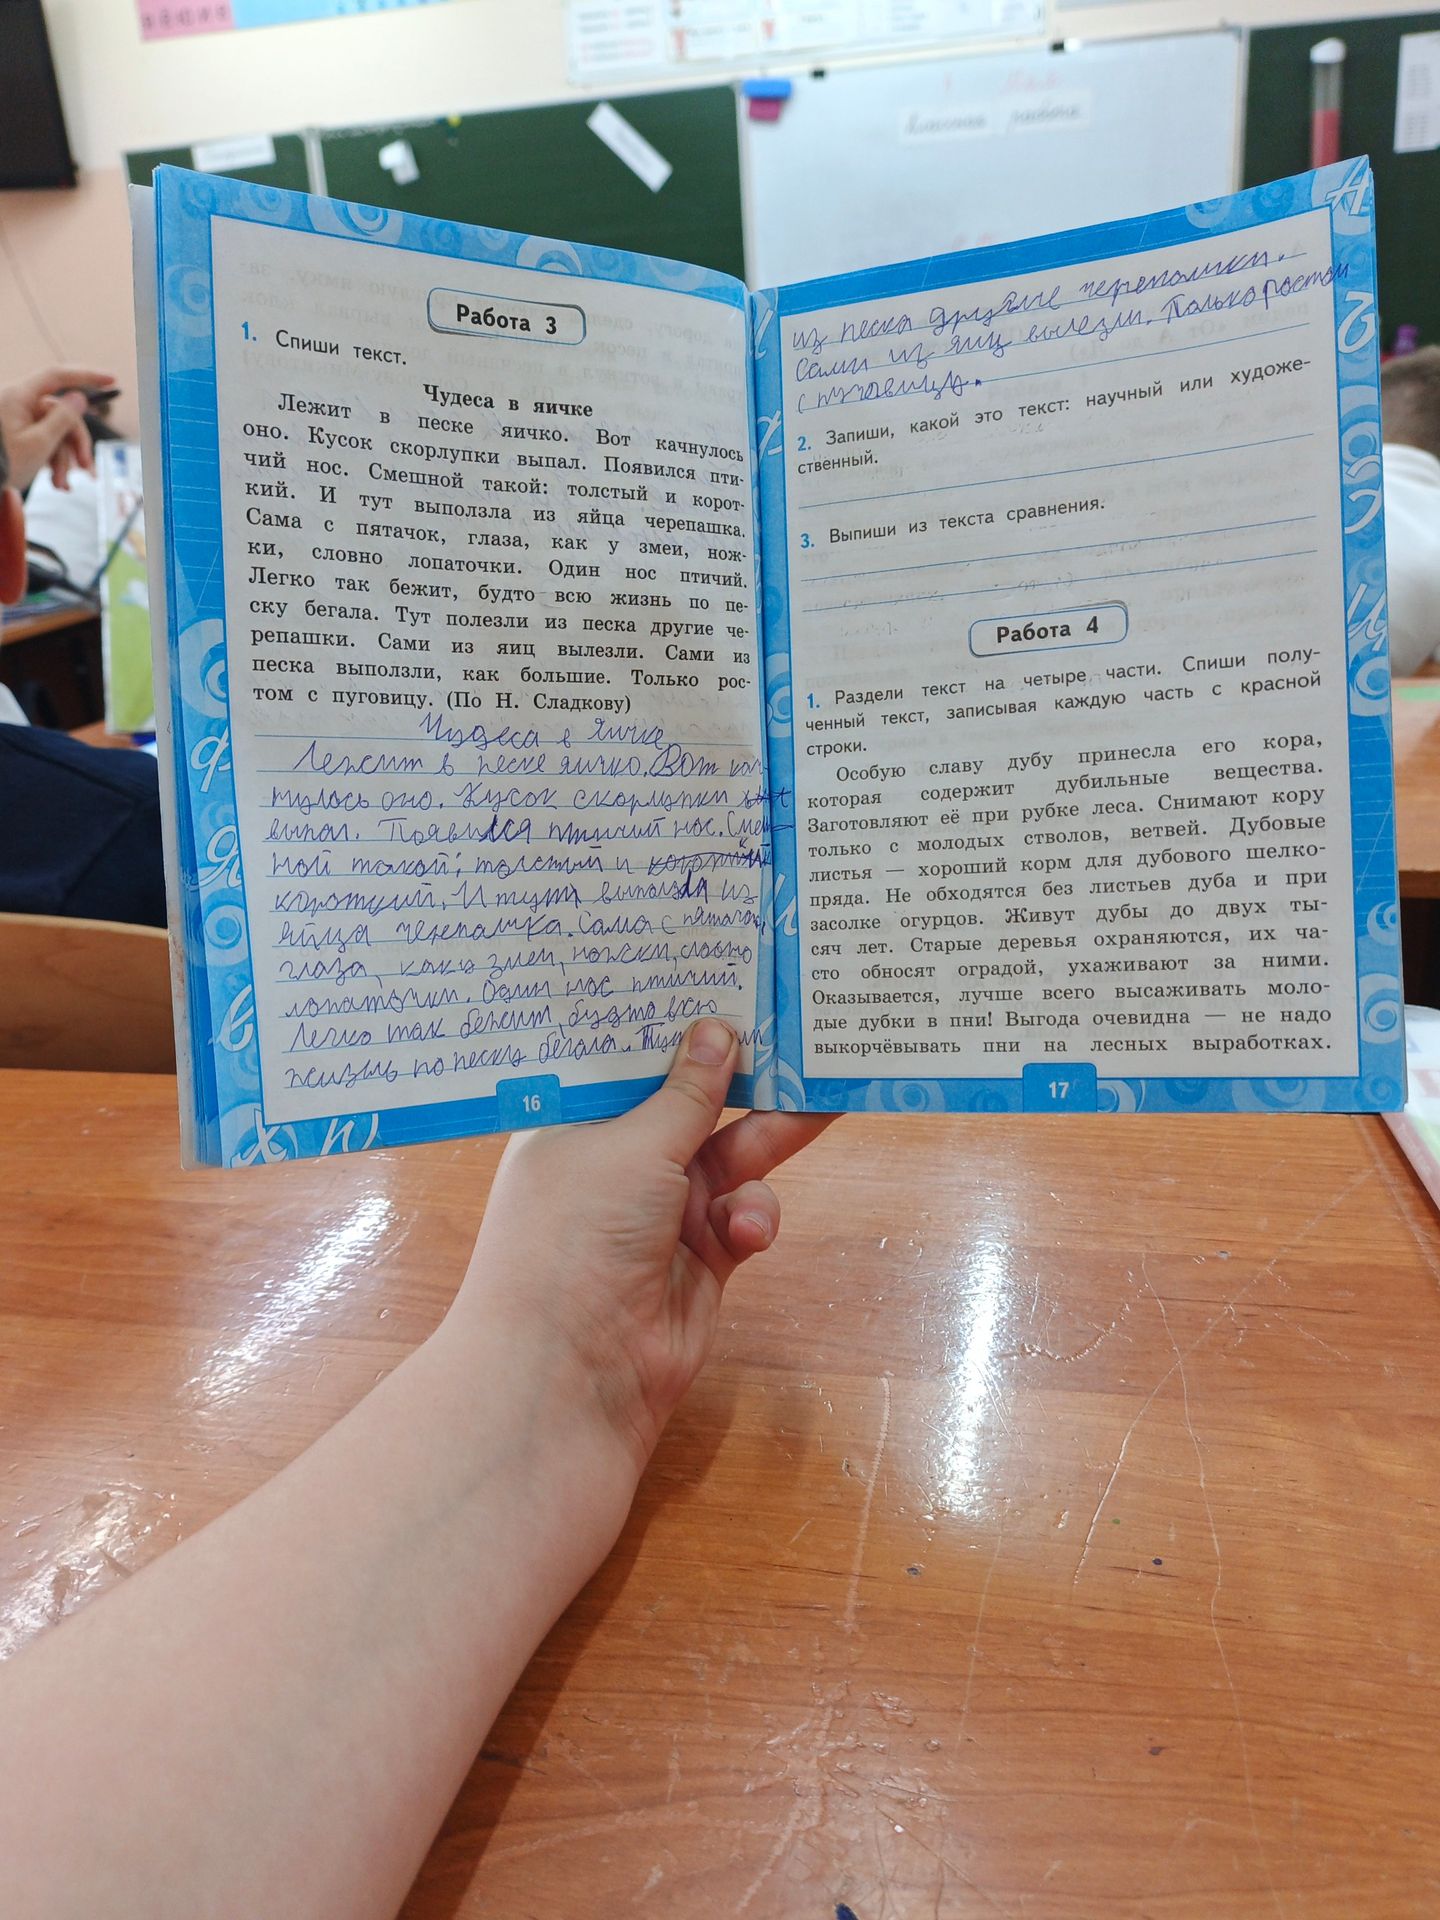 Классная работа
Работа 3
1. Спиши текст.
Чудеса в яичке
Лежит в песке яичко. Вот качнулось
оно. Кусок скорлупки выпал. Появился пти-
чий нос. Смешной такой: толстый и корот-
кий. И тут выползла из яйца черепашка.
Сама с пятачок, глаза, как у змеи, нож-
ки, словно лопаточки. Один нос птичий.
Легко так бежит, будто всю жизнь по пе-
ску бегала. Тут полезли из песка другие че-
репашки. Сами из яиц вылезли. Сами из
песка выползли, как большие. Только рос-
том с пуговицу. (По Н. Сладкову)
Чудеса в яичке
Лежит в песке яичко. Вот кач
нулось оно. Кусок скорлупки
выпал. Появился птичий нос. Смеш
ной такой: толстый и
короткий. И тут выползла из
яйца Сама с пятачок,
глаза, как у змеи, ножки, словно
лопаточки. Один нос птичий.
Легко так бежит, будто всю
жизнь по песку бегала. Тут
16
из песка другие черепашки.
Сами из яиц вылезли. Только ростом
с пуговицу.
2. Запиши, какой это текст: научный или художе-
ственный.
3. Выпиши из текста сравнения.
Работа 4
1. Раздели текст на четыре части. Спиши полу-
ченный текст, записывая каждую часть с красной
строки.
Особую славу дубу принесла его кора,
которая содержит дубильные вещества.
Заготовляют её при рубке леса. Снимают кору
только с молодых стволов, ветвей. Дубовые
листья — хороший корм для дубового шелко-
пряда. Не обходятся без листьев дуба и при
засолке огурцов. Живут дубы до двух ты-
сяч лет. Старые деревья охраняются, их ча-
сто обносят оградой, ухаживают за ними.
Оказывается, лучше всего высаживать моло-
дые дубки в пни! Выгода очевидна — не надо
выкорчёвывать пни на лесных выработках.
17